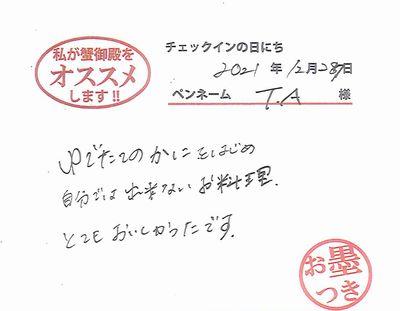 私が蟹御殿を
オススメ
します!!
チェックインの日にち
2021年12月28日
ペンネーム T.A 様
ゆでたてのかにをはじめ
自分では出来ないお料理.
とてもおいしかったです。
お墨
つき